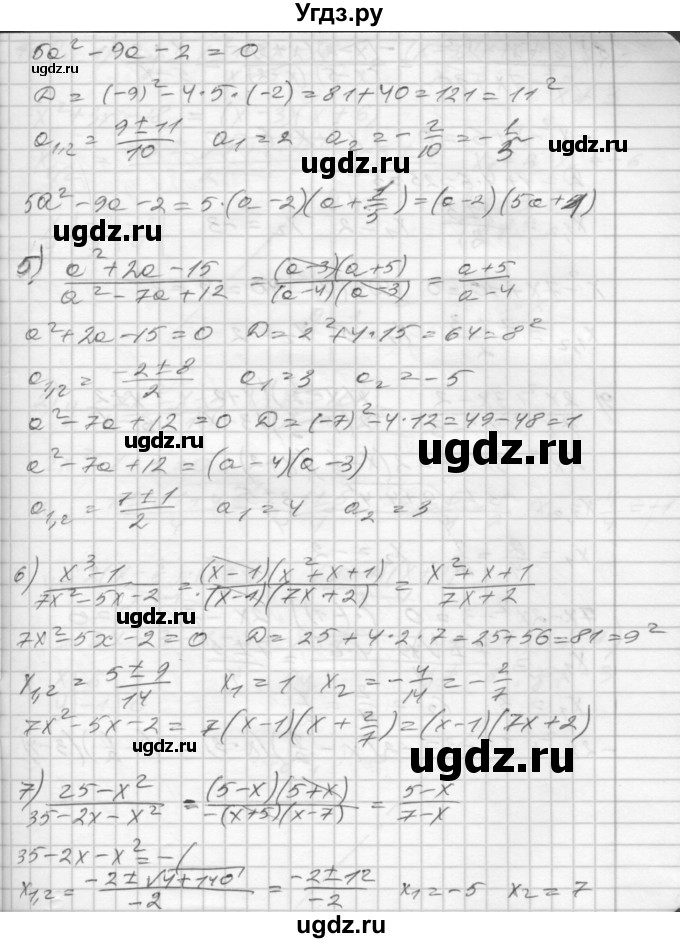 Угдз.ру
5a² - 9a - 2 = 0
ugdz.ru
D = (-9)² - 4·5·(-2) = 81 + 40 = 121 = 11²
a₁,₂ = (9 ± 11)/10 a₁ = 2 a₂ = -2/10 = -1/5
ugdz.ru ugdz.ru
5a² - 9a - 2 = 5·(a - 2)(a + 1/5) = (a - 2)(5a + 1)
ugdz.ru ugdz.ru
5) (a² + 2a - 15)/(a² - 7a + 12) = ((a - 3)(a + 5))/((a - 4)(a - 3)) = (a + 5)/(a - 4)
a² + 2a - 15 = 0 D = 2² + 4·15 = 64 = 8²
a₁,₂ = (-2 ± 8)/2 a₁ = 3 a₂ = -5
a² - 7a + 12 = 0 D = (-7)² - 4·12 = 49 - 48 = 1
ugdz.ru ugdz.ru
a² - 7a + 12 = (a - 4)(a - 3)
a₁,₂ = (7 ± 1)/2 a₁ = 4 a₂ = 3
ugdz.ru
6) (x³ - 1)/(7x² - 5x - 2) = ((x - 1)(x² + x + 1))/((x - 1)(7x + 2)) = (x² + x + 1)/(7x + 2)
7x² - 5x - 2 = 0 D = 25 + 4·2·7 = 25 + 56 = 81 = 9²
x₁,₂ = (5 ± 9)/14 x₁ = 1 x₂ = -4/14 = -2/7
7x² - 5x - 2 = 7(x - 1)(x + 2/7) = (x - 1)(7x + 2)
ugdz.ru
7) (25 - x²)/(35 - 2x - x²) = ((5 - x)(5 + x))/(-(x + 5)(x - 7)) = (5 - x)/(7 - x)
ugdz.ru ugdz.ru
35 - 2x - x² = -(
x₁,₂ = (-2 ± √4 + 140)/-2 = (-2 ± 12)/-2 x₁ = -5 x₂ = 7
ugdz.ru